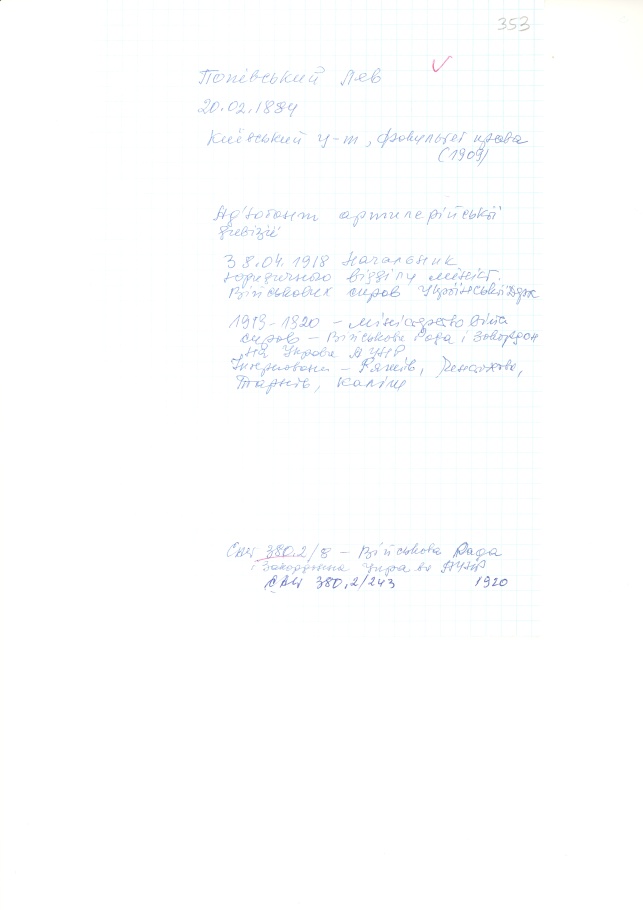 353
Попівський Лев
20.02.1884
Київський у-т, факультет права
(1909)
Ад'ютант артилерійської
дивізії
З 8.04.1918 Начальник
юридичного відділу мініст.
Військових справ Української Держ
1919-1920 – міністерство війс
справ – Військова Рада і Закордон
на Управа АУНР
Інтерновани – Ряшів,
Тарнів, Каліш
CAW 380.2/8 – Військова Рада
і Закордонна Управа АУНР
CAW 380.2/243 1920